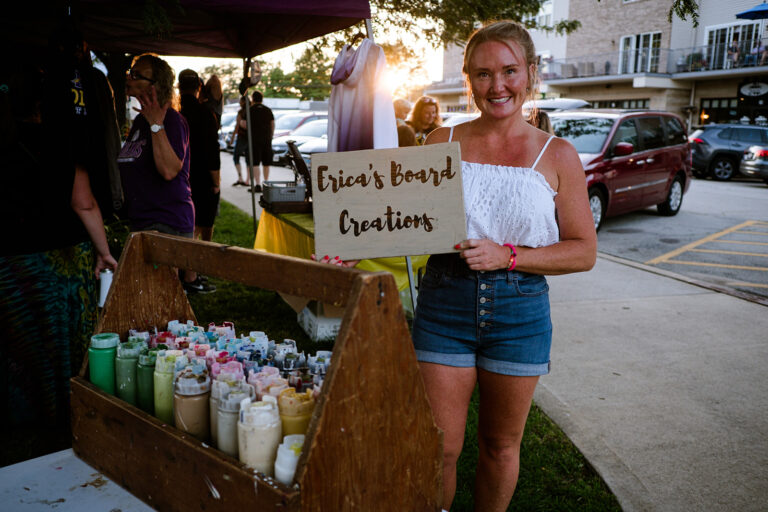 Erica's Board
Creations